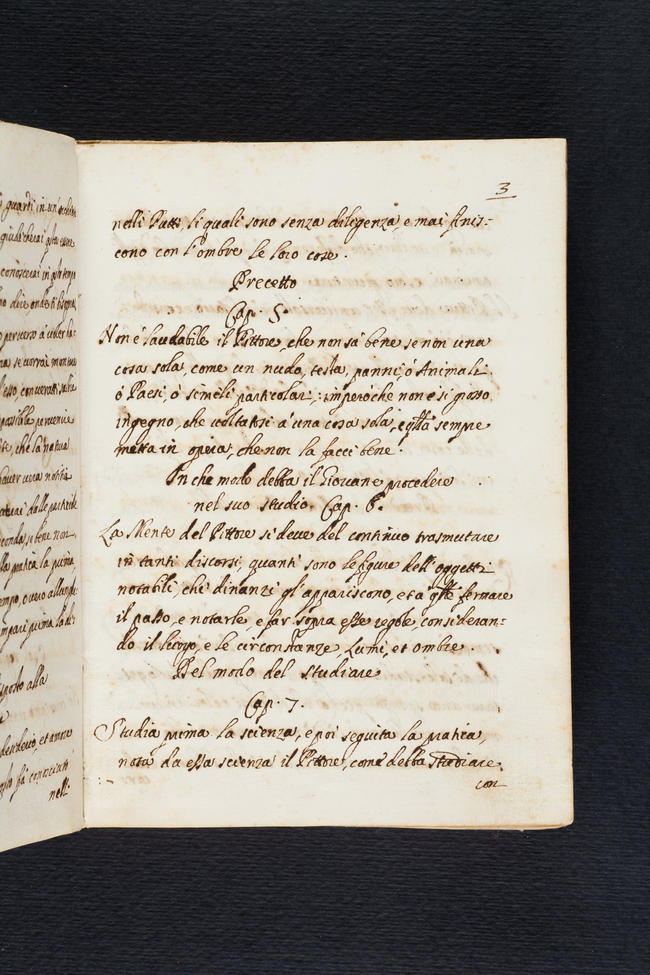 guardi in un
giudicherai
conoscerai in
conuerrati
possibile peruenire
che la natura
hauer uera notitia
dalle particole
seconda, se bene non
alla pratica la prima,
tempo, o uero
impari prima la di-
disposto alla
desiderio, et amore
conosciuti
nelli
3
nelli Putti li quali sono senza diligenza, e mai finis-
cono con l'ombre le loro cose.
Precetto
Cap. 5.
Non è laudabile il Pittore, che non sà bene se non una
cosa sola, come un nudo, testa, panni, ò Animali
ò Paesi, ò simili particolari, imperòche non è sì grosso
ingegno, che uoltatosi à una cosa sola, e q̃lla sempre
metta in opera, che non la facci bene.
In che modo debba il Giouane procedere
nel suo studio. Cap. 6.
La Mente del Pittore si deue del continuo trasmutare
in tanti discorsi, quanti sono le figure dell'oggetti
notabili, che dinanzi gl'appariscono, et a q̃lle fermare
il passo, e notarle, e far sopra esse regole, consideran-
do il luogo, e le circonstanze, Lumi, et ombre.
Del modo del studiare
Cap. 7.
Studia prima la scienza, e poi seguita la pratica,
nata da essa scienza il Pittore, come debba studiare
con